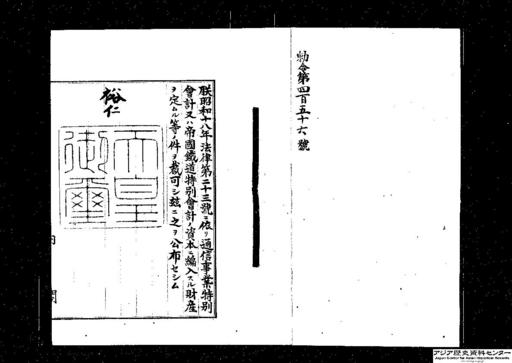 勅令第四百五十六號
朕昭和十八年法律第二十三號ニ依リ通信事業特別
會計又ハ帝國鐵道特別會計ノ資本ニ編入スル財產
ヲ定ムル等ノ件ヲ裁可シ玆ニ之ヲ公布セシム
裕仁
天皇
御璽
内 閣
アジア歴史資料センター
Japan Center for Asian Historical Records